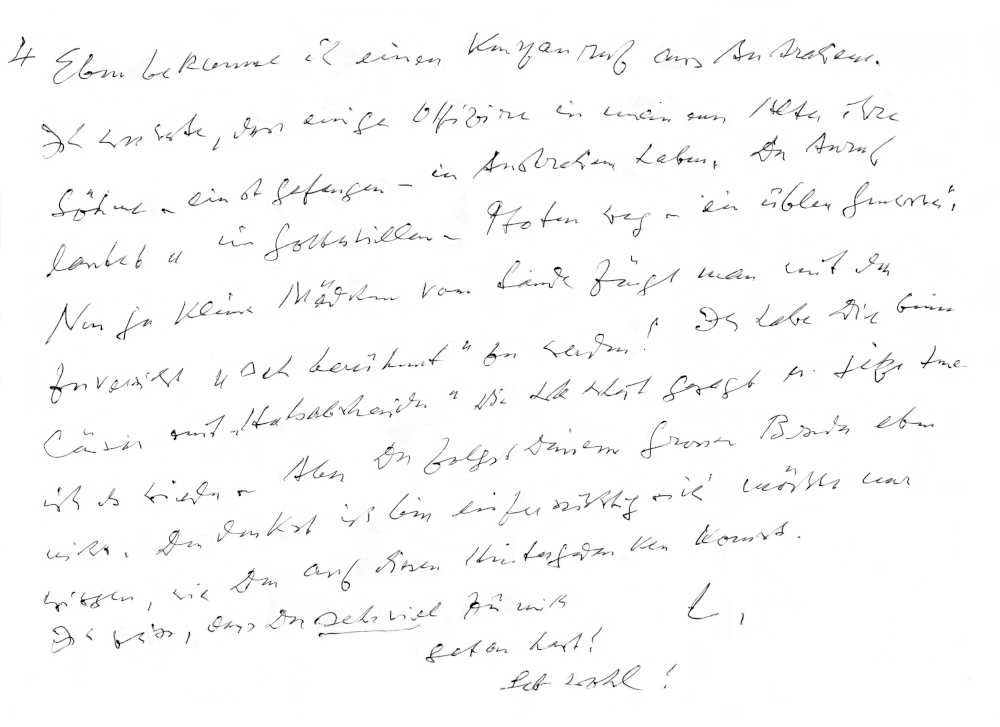 4 Eben bekomme ich einen Kurzanruf aus Australien.
Ich wusste, dass einige Offiziere in meinem Alter ihre
Söhne – einst gefangen – in Australien haben. Der Anruf
lautet „ um Gotteswillen – Pfoten weg – ein übler
Nur ja kleine Mädchen vom Lande fängt man mit der
Zuversicht „ berühmt“ zu werden! Ich habe Dir beim
Cäsar mit „Halsabschneider“ die gesagt u. jetzt tue
ich es wieder – Aber Du folgst Deinem grossen Bruder eben
nicht. Du denkst ich bin eifersüchtig – ich möchte nur
wissen, wie Du auf diesen Hintergedanken kommst.
Ich weiss, dass Du sehr viel für mich
getan hast!
Leb wohl!
L.